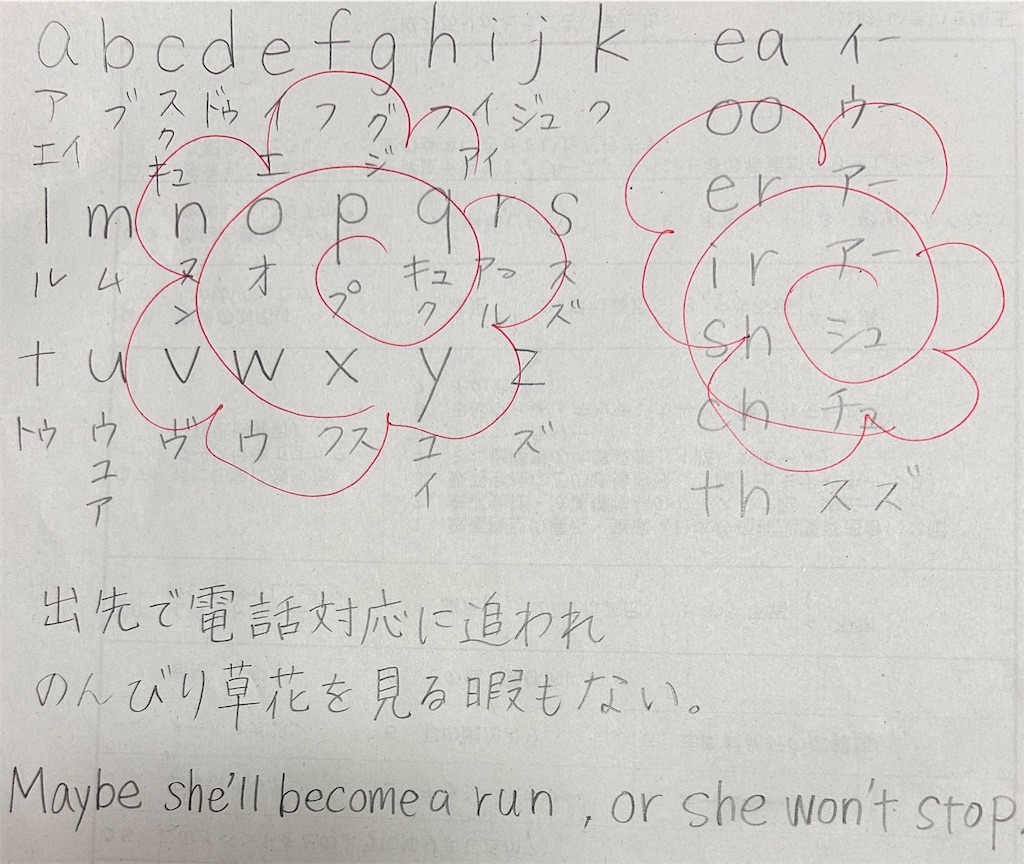 a b c d e f g h i j k
ア ブ ス ドゥ イ フ グ フ イ ジュ ク
ク
エイ キュ エ ジ アイ
l m n o p q r s
ル ム ヌ オ プ キュ アー ス
ン ク ル ズ
t u v w x y z
トゥ ウ ヴ ウ クス ユ ズ
ユ イ
ア
ea イー
oo ウー
er アー
ir アー
sh シュ
ch チュ
th ス ズ
出先で電話対応に追われ
のんびり草花を見る暇もない。
Maybe she'll become a run , or she won't stop.